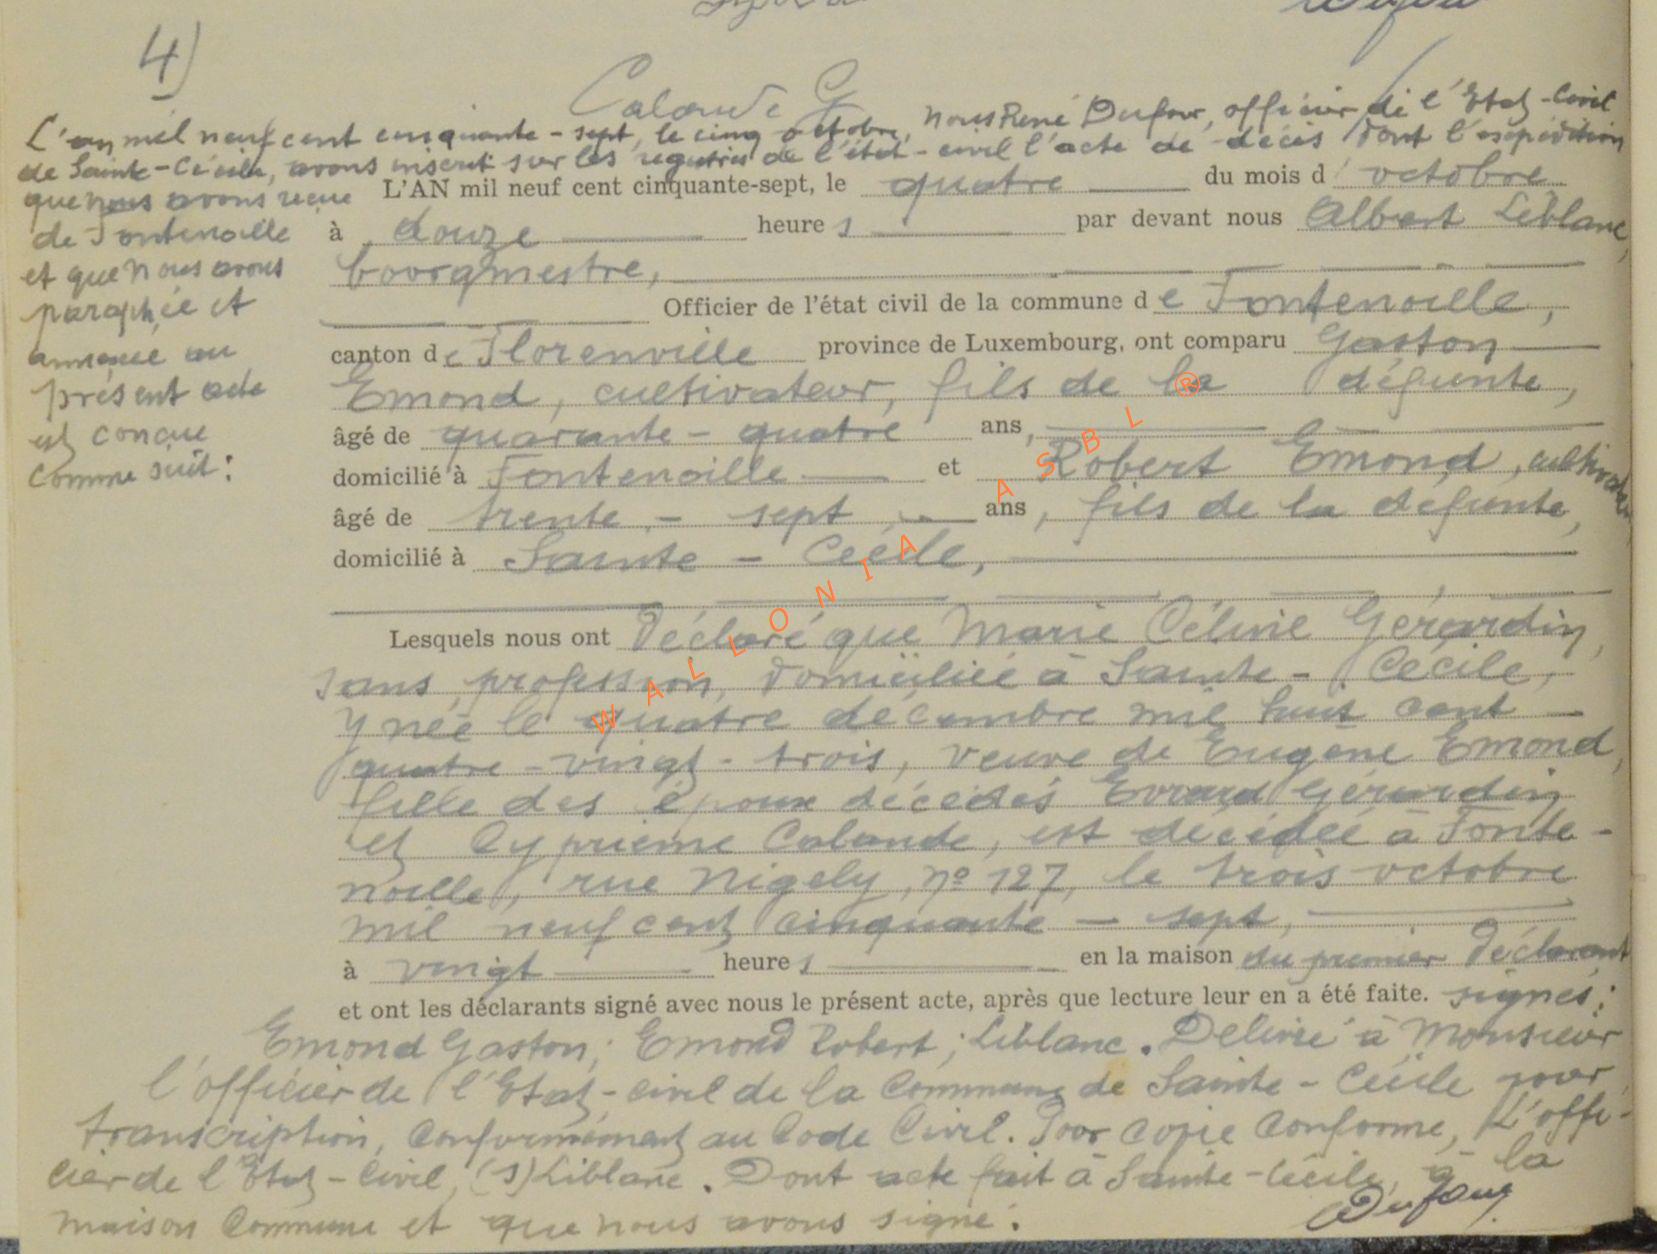 4)
Calande G
L'an mil neuf cent cinquante-sept, le cinq octobre, nous René Dufour, officier de l'Etat-Civil
de Sainte-Cécile, avons inscrit sur les registres de l'état-civil l'acte de décès dont l'expédition
que nous avons reçue
de Fontenoille
et que nous avons
paraphée et
annexée au
présent acte
est conçue
comme suit :
L'AN mil neuf cent cinquante-sept, le quatre du mois d'octobre
à douze heures par devant nous Albert Leblanc,
bourgmestre,
Officier de l'état civil de la commune de Fontenoille,
canton de Florenville province de Luxembourg, ont comparu Gaston
Emond, cultivateur, fils de la défunte,
âgé de quarante-quatre ans,
domicilié à Fontenoille et Robert Emond, cultivateur,
âgé de trente-sept ans, fils de la défunte,
domicilié à Sainte-Cécile,
Lesquels nous ont déclaré que Marie Céline Gérardin,
sans profession, domiciliée à Sainte-Cécile,
y née le quatre décembre mil huit cent
quatre-vingt-trois, veuve de Eugène Emond,
fille des époux décédés Evrard Gérardin
et Cyprienne Calande, est décédée à Fonte-
noille, rue Nigely, n° 127, le trois octobre
mil neuf cent cinquante-sept,
à vingt heures en la maison du premier déclarant
et ont les déclarants signé avec nous le présent acte, après que lecture leur en a été faite. signés :
Emond Gaston ; Emond Robert ; Leblanc. Délivré à Monsieur
l'officier de l'Etat-civil de la Commune de Sainte-Cécile pour
transcription, conformément au Code Civil. Pour copie conforme, L'offi-
cier de l'Etat-Civil, (s) Leblanc. Dont acte fait à Sainte-Cécile, à la
maison Commune et que nous avons signé.
Dufour
WALLONIA ASBL ®